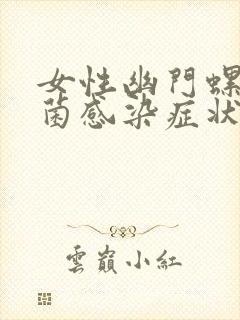 女性幽門螺
菌感染症狀
雲巔小紅